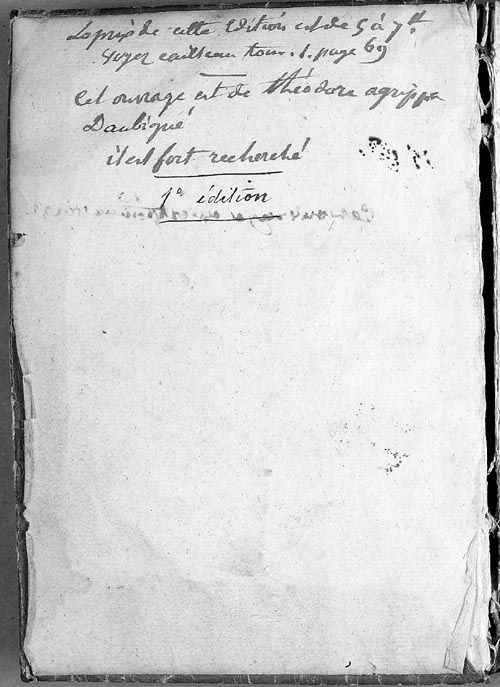 Le prix de cette edition est de 5 à 7 ₶.
Voyez cailleau tom. 1. page 69
Cet ouvrage est de théodore agrippa
Daubigné
il est fort recherché
1e édition